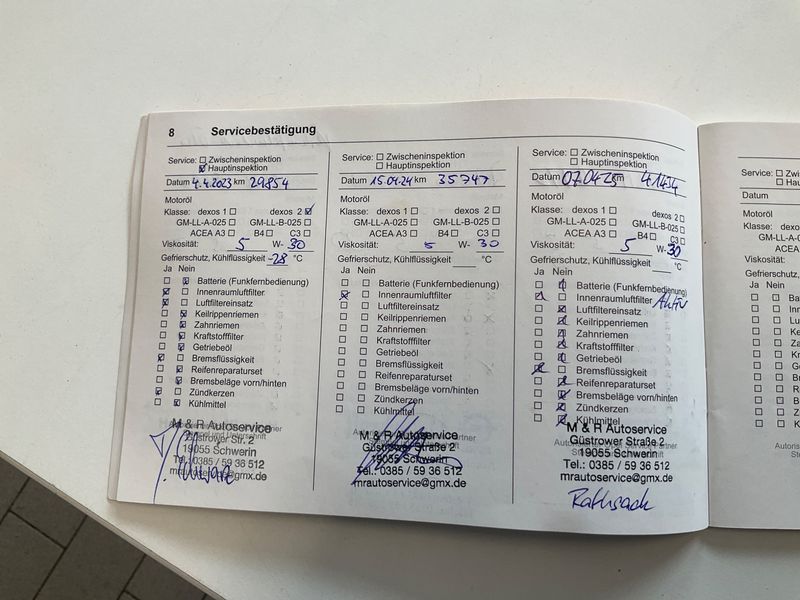 8 Servicebestätigung
Service: ☐ Zwischeninspektion
☒ Hauptinspektion
Datum 4.4.2023 km 29854
Motoröl
Klasse: dexos 1 ☐ dexos 2 ☒
GM-LL-A-025 ☐ GM-LL-B-025 ☐
ACEA A3 ☐ B4 ☐ C3 ☐
Viskosität: 5 W- 30
Gefrierschutz, Kühlflüssigkeit -28 °C
Ja Nein
☐ ☒ Batterie (Funkfernbedienung)
☒ ☐ Innenraumluftfilter
☒ ☐ Luftfiltereinsatz
☐ ☒ Keilrippenriemen
☐ ☒ Zahnriemen
☐ ☒ Kraftstofffilter
☐ ☒ Getriebeöl
☒ ☐ Bremsflüssigkeit
☐ ☒ Reifenreparaturset
☐ ☒ Bremsbeläge vorn/hinten
☒ ☐ Zündkerzen
☐ ☒ Kühlmittel
M & R Autoservice
Güstrower Str. 2
19055 Schwerin
Tel.: 0385 / 59 36 512
mrautoservice@gmx.de
Service: ☐ Zwischeninspektion
☐ Hauptinspektion
Datum 15.04.24 km 35747
Motoröl
Klasse: dexos 1 ☐ dexos 2 ☐
GM-LL-A-025 ☐ GM-LL-B-025 ☐
ACEA A3 ☐ B4 ☐ C3 ☐
Viskosität: 5 W- 30
Gefrierschutz, Kühlflüssigkeit °C
Ja Nein
☐ ☐ Batterie (Funkfernbedienung)
☒ ☐ Innenraumluftfilter
☐ ☐ Luftfiltereinsatz
☐ ☐ Keilrippenriemen
☐ ☐ Zahnriemen
☐ ☐ Kraftstofffilter
☐ ☐ Getriebeöl
☐ ☐ Bremsflüssigkeit
☐ ☐ Reifenreparaturset
☐ ☐ Bremsbeläge vorn/hinten
☐ ☐ Zündkerzen
☐ ☐ Kühlmittel
M & R Autoservice
Güstrower Straße 2
19055 Schwerin
Tel.: 0385 / 59 36 512
mrautoservice@gmx.de
Service: ☐ Zwischeninspektion
☐ Hauptinspektion
Datum 07.04.25 km
Motoröl
Klasse: dexos 1 ☐ dexos 2 ☐
GM-LL-A-025 ☐ GM-LL-B-025 ☐
ACEA A3 ☐ B4 ☐ C3 ☐
Viskosität: 5 W- 30
Gefrierschutz, Kühlflüssigkeit °C
Ja Nein
☐ ☒ Batterie (Funkfernbedienung)
☒ ☐ Innenraumluftfilter Aktiv
☐ ☒ Luftfiltereinsatz
☐ ☒ Keilrippenriemen
☐ ☒ Zahnriemen
☐ ☒ Kraftstofffilter
☐ ☒ Getriebeöl
☒ ☐ Bremsflüssigkeit
☐ ☒ Reifenreparaturset
☐ ☒ Bremsbeläge vorn/hinten
☐ ☒ Zündkerzen
☐ ☒ Kühlmittel
M & R Autoservice
Güstrower Straße 2
19055 Schwerin
Tel.: 0385 / 59 36 512
mrautoservice@gmx.de
Rathsack
Service: ☐ Zwi
☐ Ha
Datum
Motoröl
Klasse: dexo
GM-LL-A-02
ACEA A
Viskosität:
Gefrierschutz,
Ja Nein
☐ ☐ Batt
☐ ☐ Inn
☐ ☐ Lu
☐ ☐ Ke
☐ ☐ Za
☐ ☐ Kr
☐ ☐ G
☐ ☐ B
☐ ☐ R
☐ ☐ B